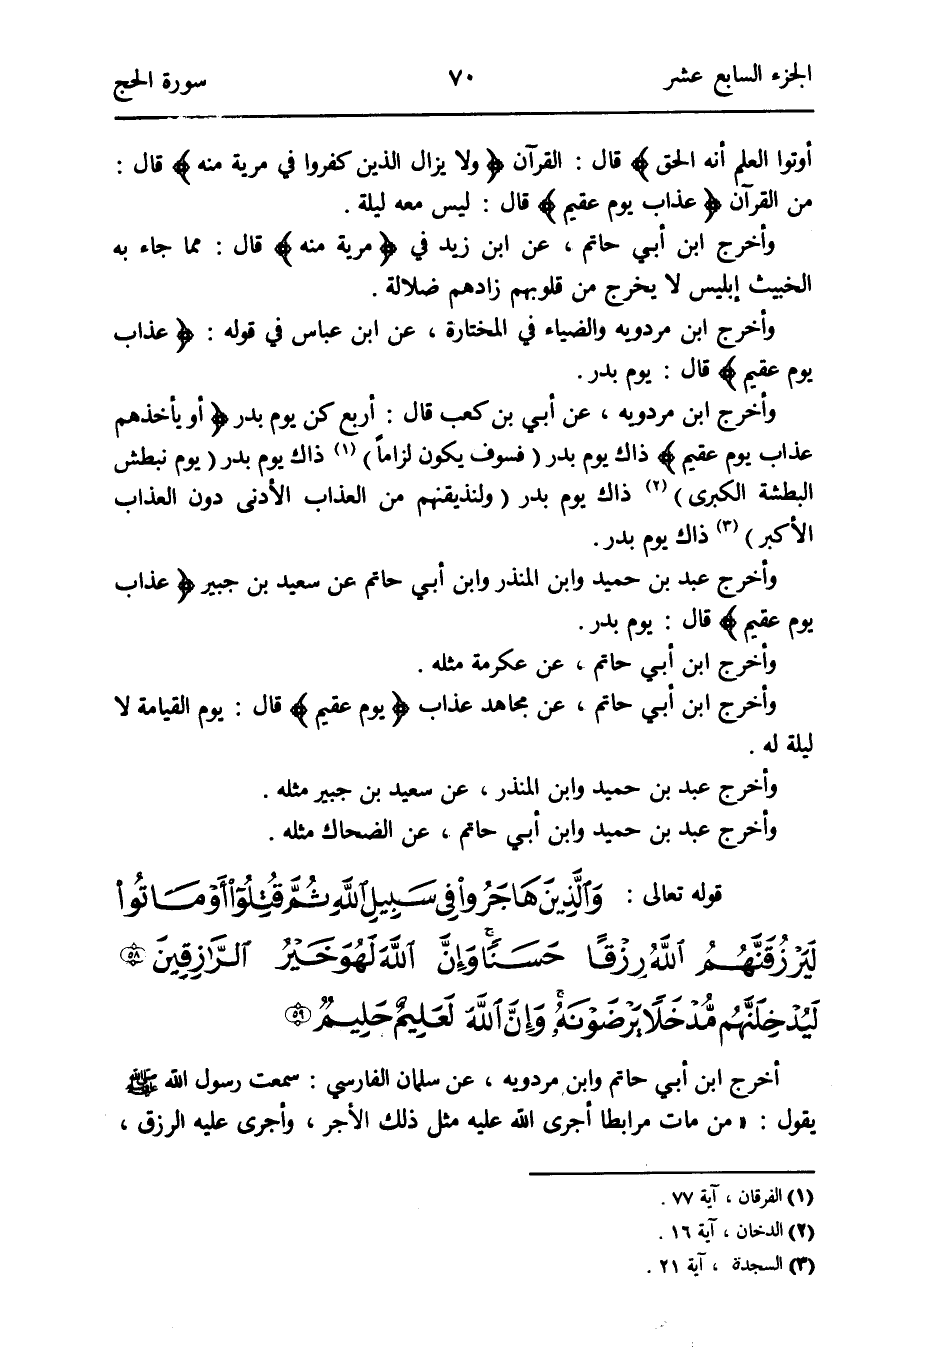 الجزء السابع عشر ٧٠ سورة الحج
أوتوا العلم أنه الحق ﴾ قال : القرآن ﴿ ولا يزال الذين كفروا في مرية منه ﴾ قال :
من القرآن ﴿ عذاب يوم عقيم ﴾ قال : ليس معه ليلة .
وأخرج ابن أبي حاتم ، عن ابن زيد في ﴿ مرية منه ﴾ قال : مما جاء به
الخبيث إبليس لا يخرج من قلوبهم زادهم ضلالة .
وأخرج ابن مردويه والضياء في المختارة ، عن ابن عباس في قوله : ﴿ عذاب
يوم عقيم ﴾ قال : يوم بدر .
وأخرج ابن مردويه ، عن أبي بن كعب قال : أربع كن يوم بدر ﴿ أو يأخذهم
عذاب يوم عقيم ﴾ ذاك يوم بدر ( فسوف يكون لزاماً ) (١) ذاك يوم بدر ( يوم نبطش
البطشة الكبرى ) (٢) ذاك يوم بدر ( ولنذيقنهم من العذاب الأدنى دون العذاب
الأكبر ) (٣) ذاك يوم بدر .
وأخرج عبد بن حميد وابن المنذر وابن أبي حاتم عن سعيد بن جبير ﴿ عذاب
يوم عقيم ﴾ قال : يوم بدر .
وأخرج ابن أبي حاتم ، عن عكرمة مثله .
وأخرج ابن أبي حاتم ، عن مجاهد عذاب ﴿ يوم عقيم ﴾ قال : يوم القيامة لا
ليلة له .
وأخرج عبد بن حميد وابن المنذر ، عن سعيد بن جبير مثله .
وأخرج عبد بن حميد وابن أبي حاتم ، عن الضحاك مثله .
قوله تعالى : وَٱلَّذِينَ هَاجَرُواْ فِى سَبِيلِ ٱللَّهِ ثُمَّ قُتِلُوٓاْ أَوۡ مَاتُواْ
لَيَرۡزُقَنَّهُمُ ٱللَّهُ رِزۡقًا حَسَنٗاۚ وَإِنَّ ٱللَّهَ لَهُوَ خَيۡرُ ٱلرَّٰزِقِينَ ٥٨
لَيُدۡخِلَنَّهُم مُّدۡخَلٗا يَرۡضَوۡنَهُۥۚ وَإِنَّ ٱللَّهَ لَعَلِيمٌ حَلِيمٞ ٥٩
أخرج ابن أبي حاتم وابن مردويه ، عن سلمان الفارسي : سمعت رسول الله ﷺ
يقول : « من مات مرابطا أجرى الله عليه مثل ذلك الأجر ، وأجرى عليه الرزق ،
(١) الفرقان ، آية ٧٧ .
(٢) الدخان ، آية ١٦ .
(٣) السجدة ، آية ٢١ .